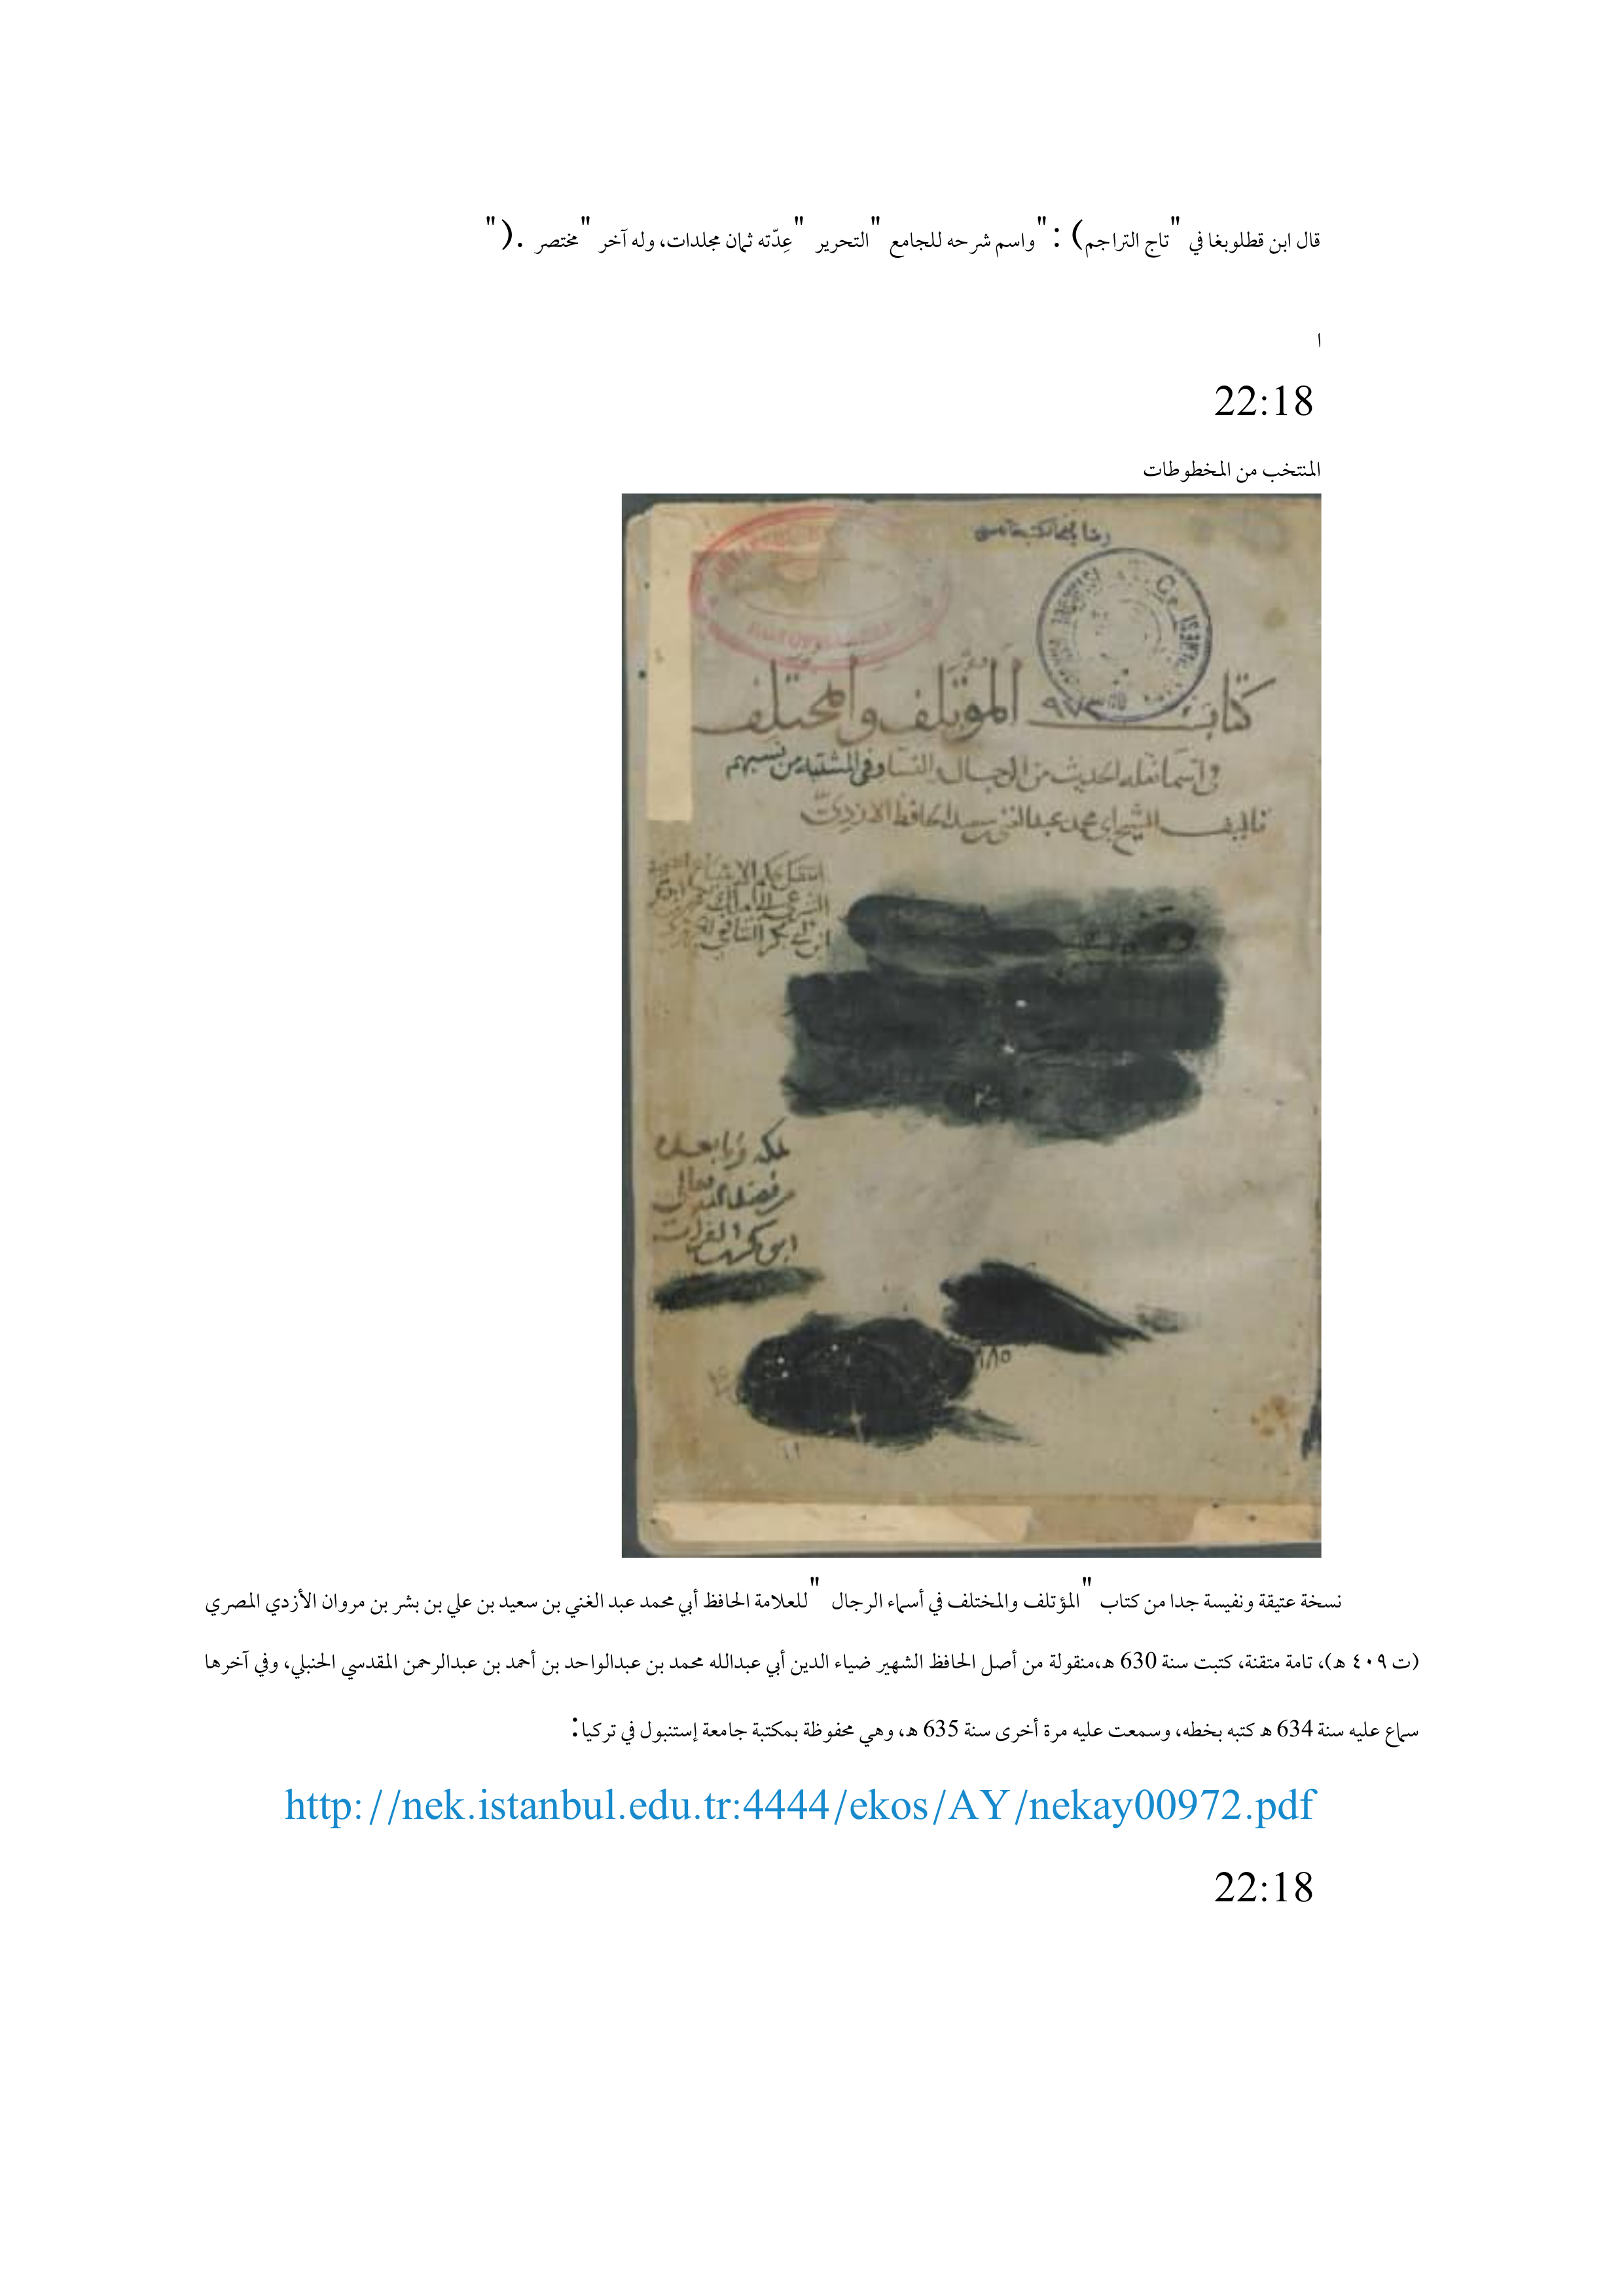 قال ابن قطلوبغا في "تاج التراجم) : "واسم شرحه للجامع "التحرير "عِدّته ثمان مجلدات، وله آخر "مختصر .( "
ا
22:18
المنتخب من المخطوطات
كتاب المؤتلف والمختلف
في اسما نقله الحديث من الرجال والنسا وفي المشتبه من نسبهم
تاليف الشيخ ابي محمد عبد الغني بن سعيد الحافظ الازديّ
ملكه وما بعده
من فضل الله تعالى
نسخة عتيقة ونفيسة جدا من كتاب "المؤتلف والمختلف في أسماء الرجال "للعلامة الحافظ أبي محمد عبد الغني بن سعيد بن علي بن بشر بن مروان الأزدي المصري
(ت ٤٠٩ هـ)، تامة متقنة، كتبت سنة 630 هـ،منقولة من أصل الحافظ الشهير ضياء الدين أبي عبدالله محمد بن عبدالواحد بن أحمد بن عبدالرحمن المقدسي الحنبلي، وفي آخرها
سماع عليه سنة 634 هـ كتبه بخطه، وسمعت عليه مرة أخرى سنة 635 هـ، وهي محفوظة بمكتبة جامعة إستنبول في تركيا:
http://nek.istanbul.edu.tr:4444/ekos/AY/nekay00972.pdf
22:18